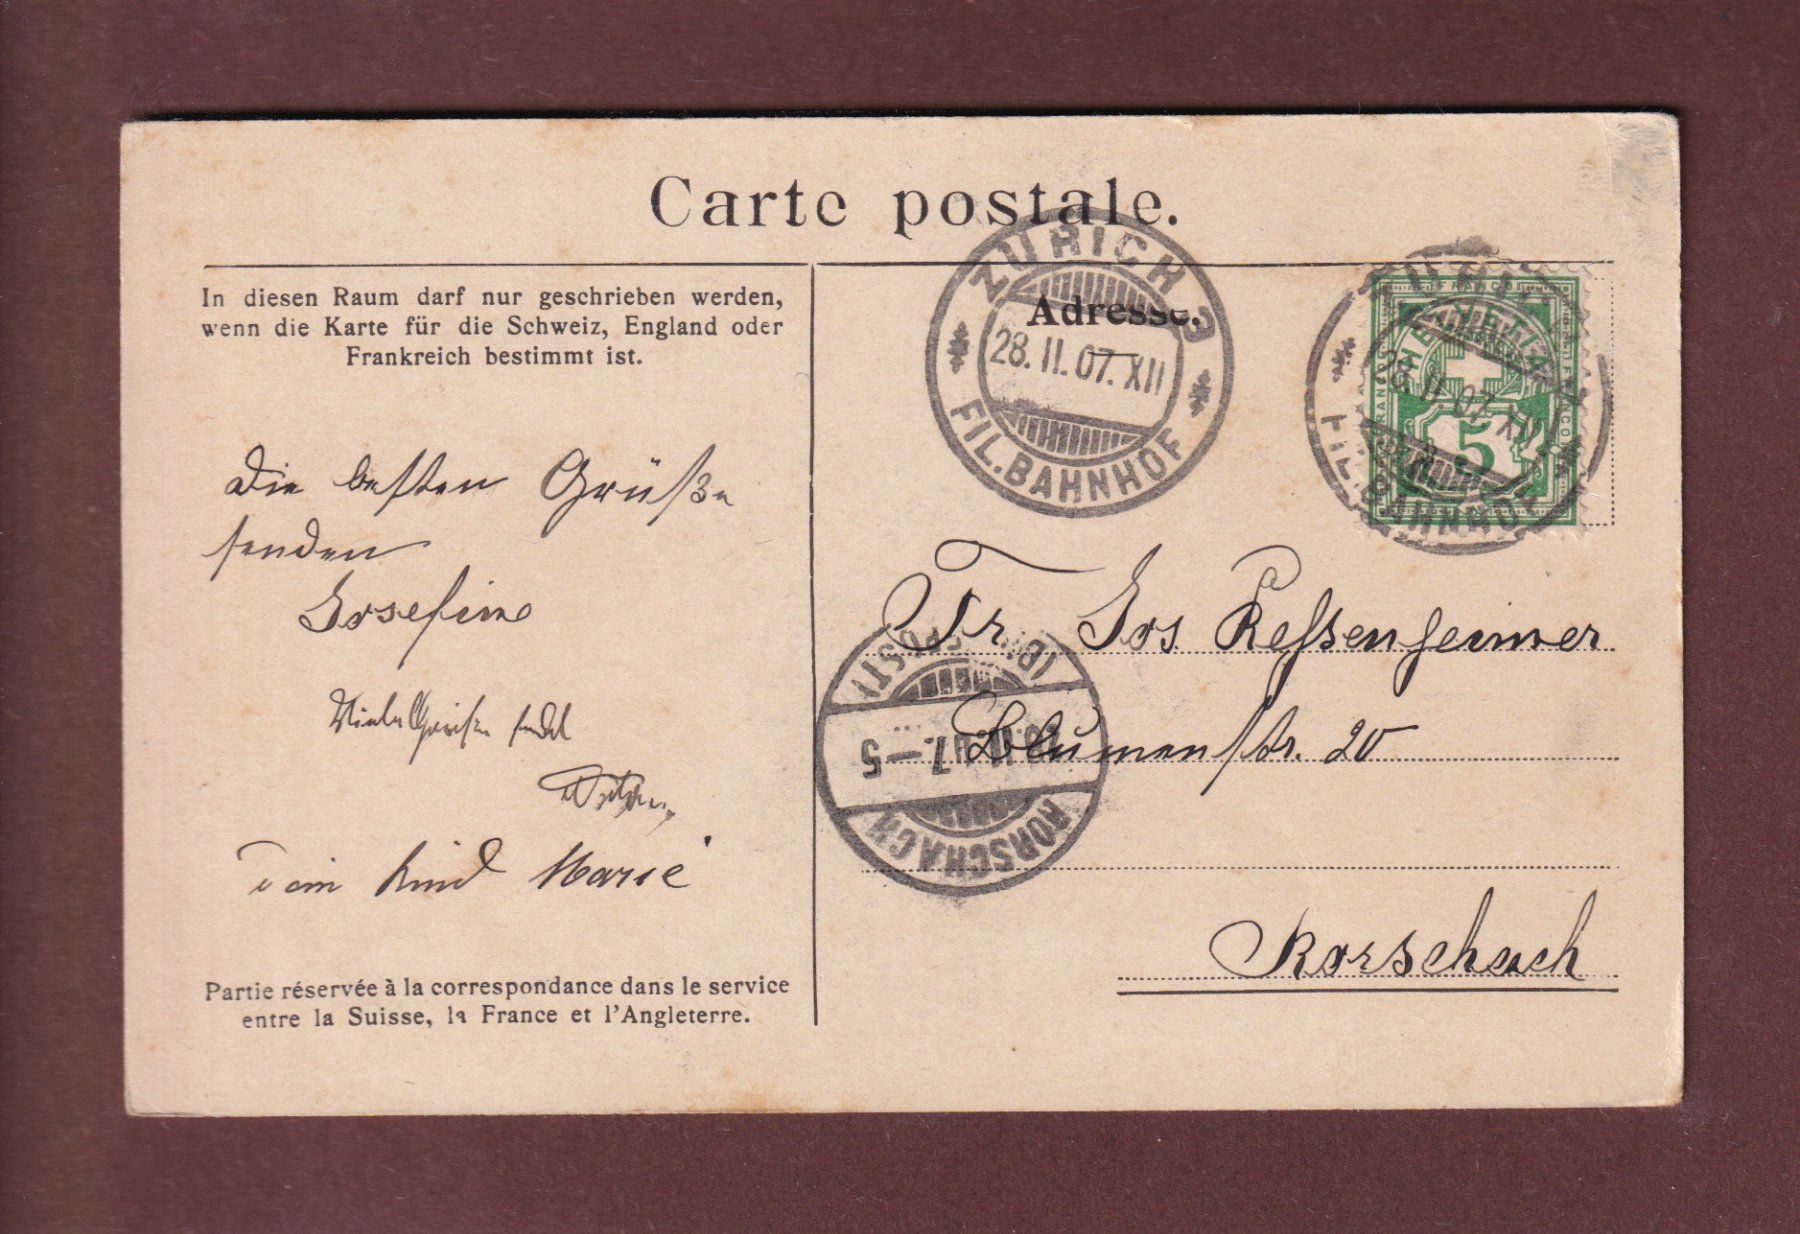 Carte postale.
In diesen Raum darf nur geschrieben werden,
wenn die Karte für die Schweiz, England oder
Frankreich bestimmt ist.
Die besten Grüße
senden
Josefine
Viele Grüße sendet
Kind Marie
Partie réservée à la correspondance dans le service
entre la Suisse, la France et l'Angleterre.
Adresse.
ZÜRICH 3
28. II. 07. XII
FIL. BAHNHOF
FRANCO
HELVETIA
5
28. II. 07. XII
FIL. BAHNHOF
Fr. Jos.
Blumenstr. 20
Rorschach
RORSCHACH
28. II. 07. – 5